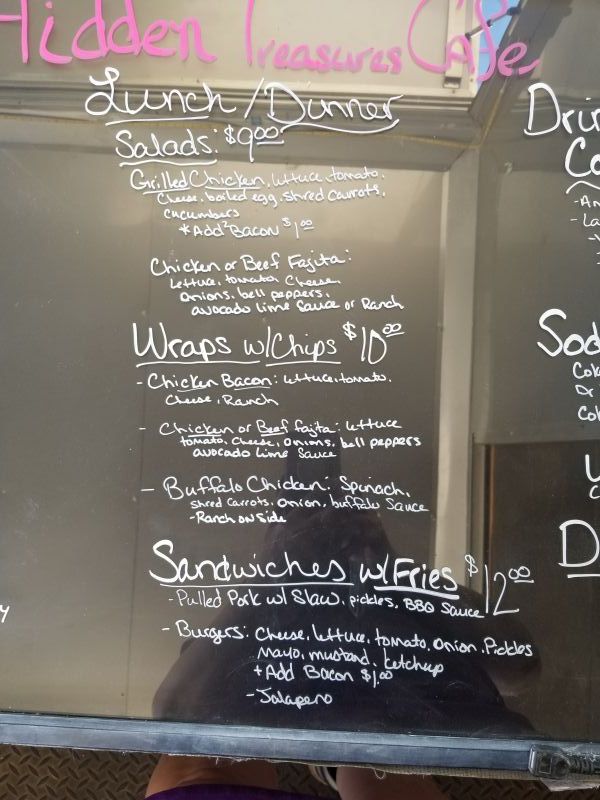 Hidden Treasures Cafe
Lunch/Dinner
Salads: $9.00
Grilled Chicken, lettuce, tomato,
Cheese, boiled egg, shred carrots,
cucumbers
*Add Bacon $1.00
Chicken or Beef Fajita:
Lettuce, tomato, Cheese,
Onions, bell peppers,
avocado lime Sauce or Ranch
Wraps w/Chips $10.00
- Chicken Bacon: lettuce, tomato,
Cheese, Ranch
- Chicken or Beef fajita: lettuce
tomato, cheese, onions, bell peppers
avocado lime Sauce
- Buffalo Chicken: Spinach,
shred carrots, onion, buffalo Sauce
- Ranch on Side
Sandwiches w/Fries $12.00
- Pulled Pork w/ Slaw, pickles, BBQ Sauce
- Burgers: Cheese, lettuce, tomato, onion, Pickles
Mayo, mustard, ketchup
+ Add Bacon $1.00
- Jalapeno